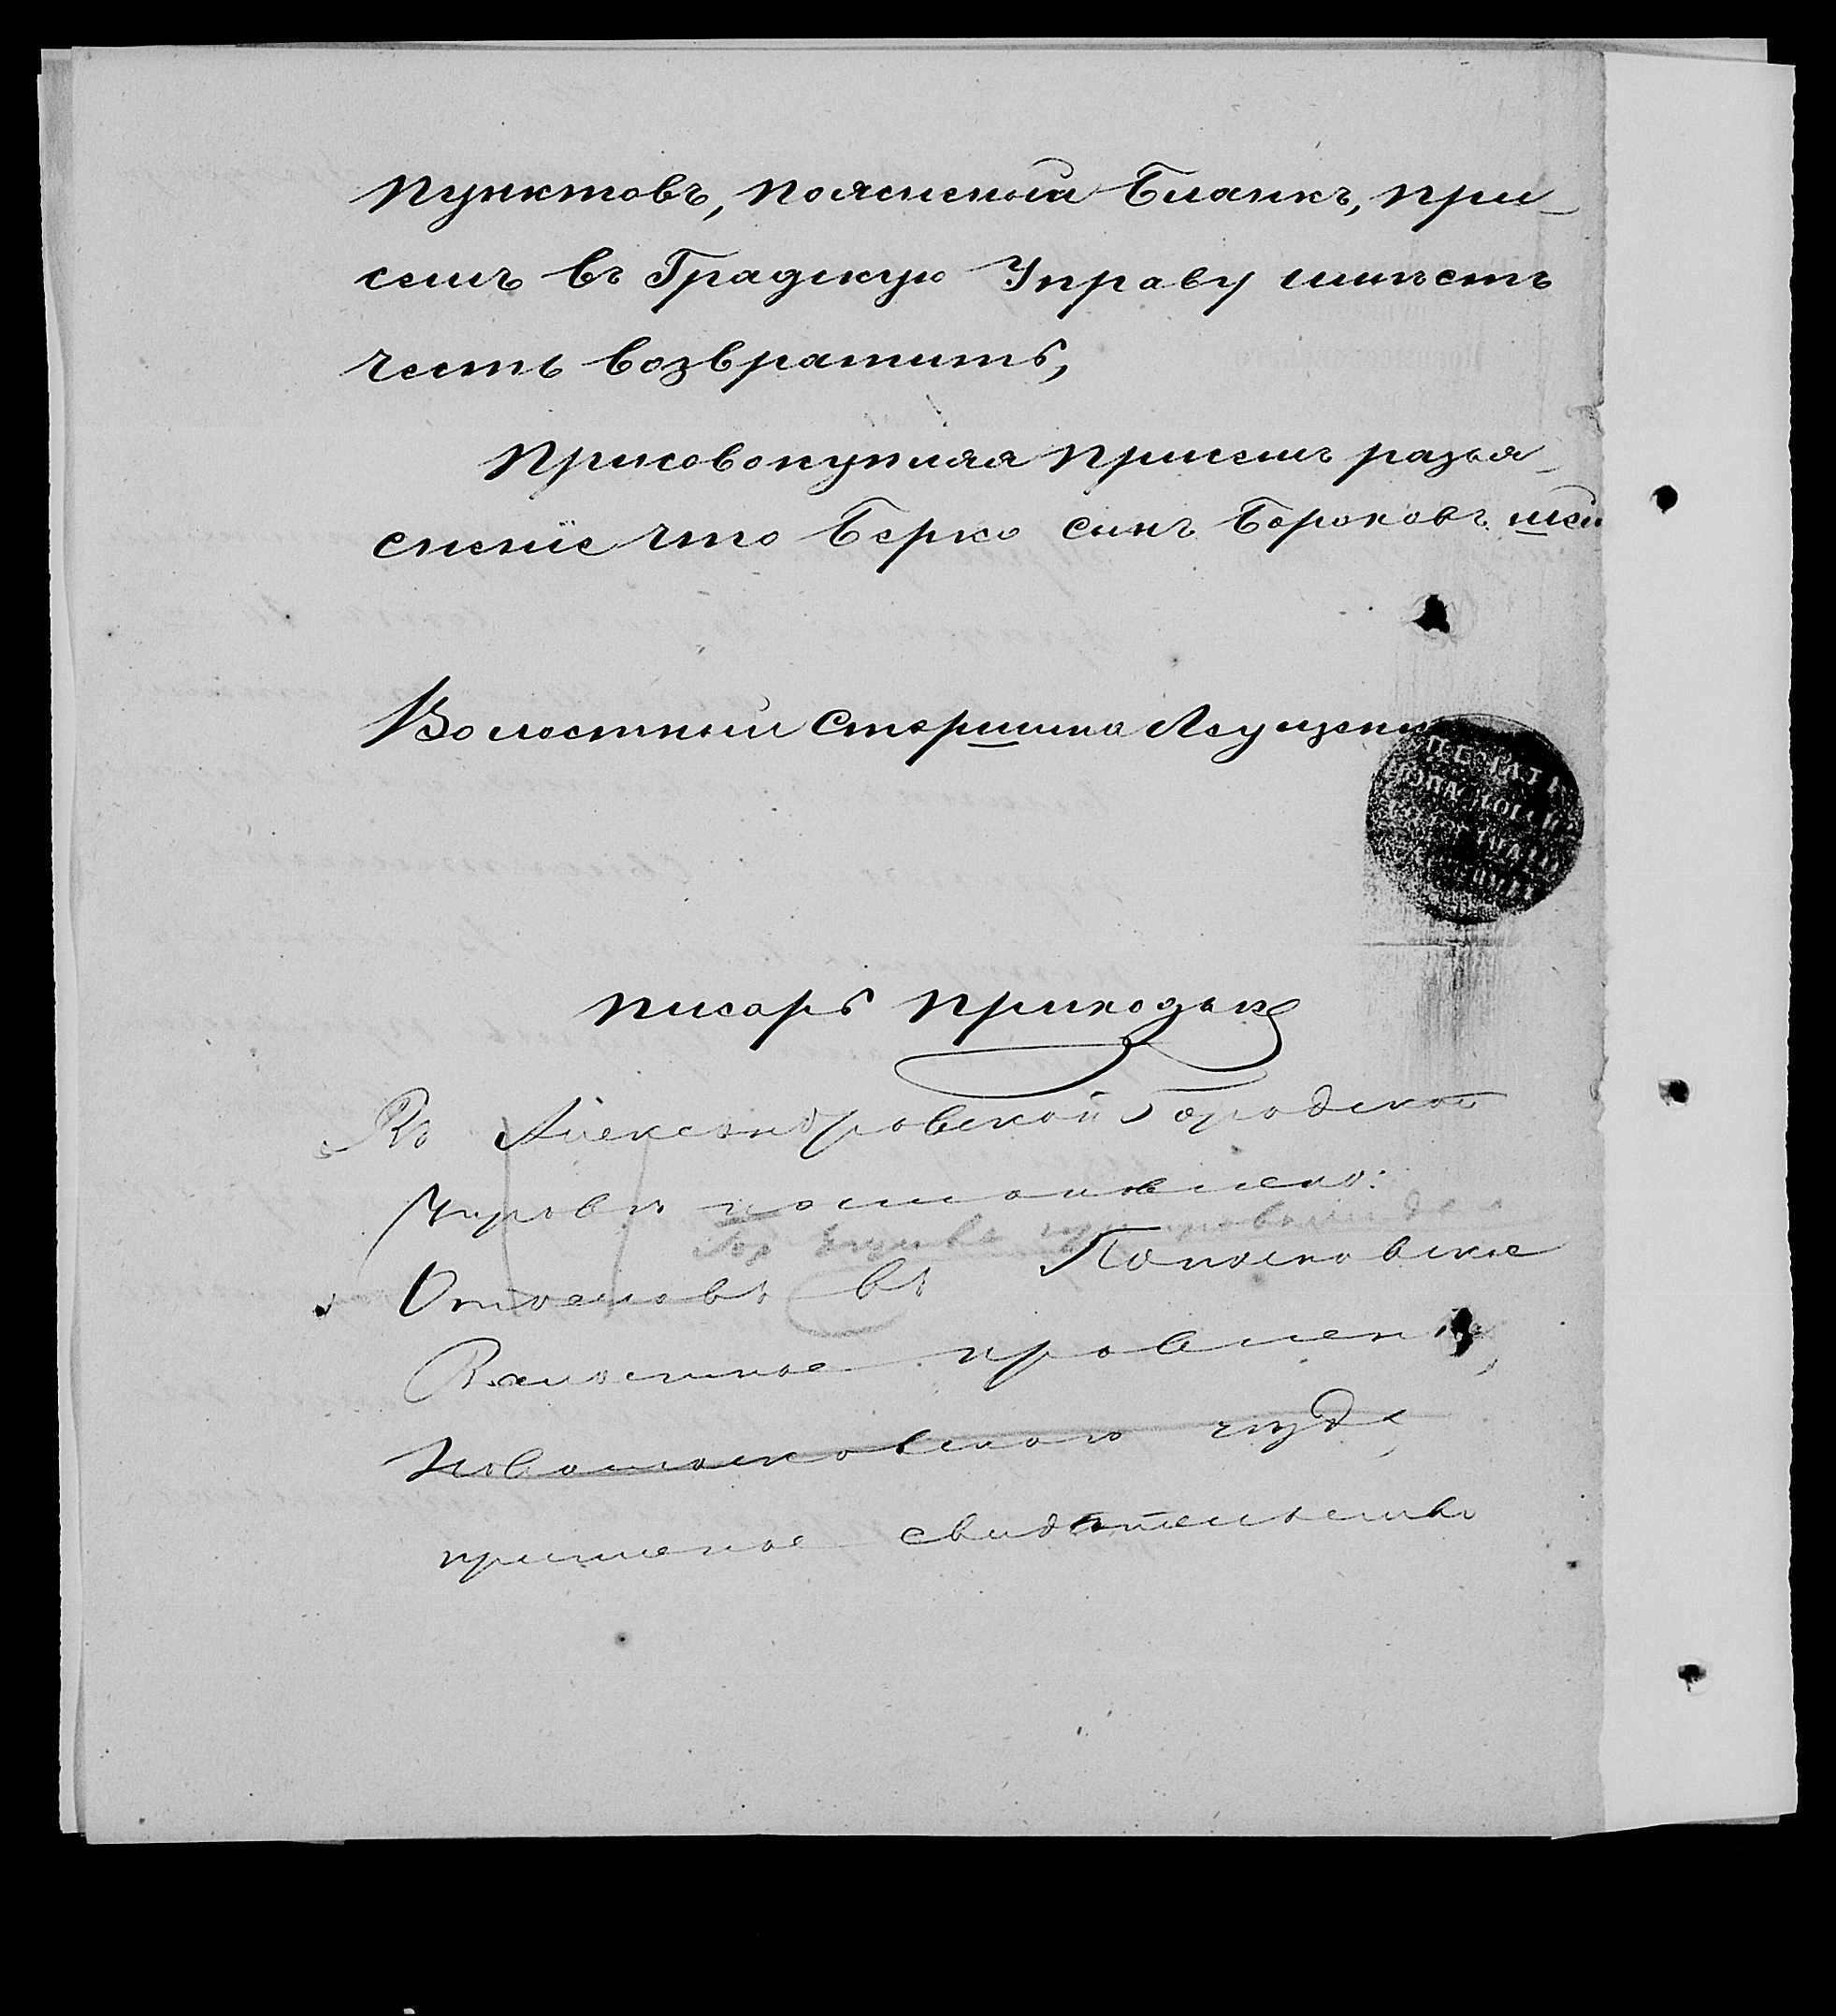 пунктовъ, пояснений бланкъ, при-
семъ въ Градскую Управу имѣетъ
честь возвратить,
Присовокупляя присемъ разъя-
снение что Берко сынъ Бороховъ
Волостний Старшина Леуценк
ПЕЧАТЬ
Писарь Приходько
Въ Александровской Городской
Управѣ постановлено:
Отославъ въ Попасновское
Волостное правление,
Новомосковскаго уезда,
присланое свидѣтельство